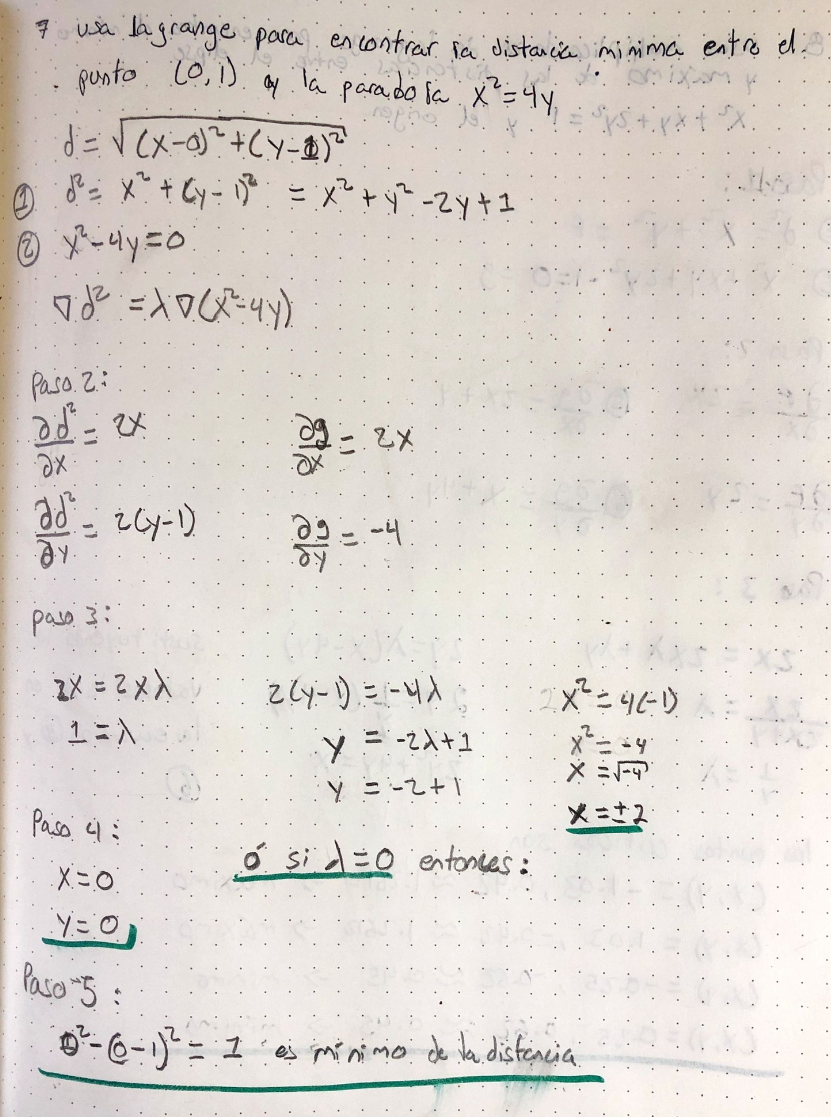 7 usa lagrange para encontrar la distancia minima entre el
punto (0,1) y la parabola x² = 4y
d = √(x-0)² + (y-1)²
① d² = x² + (y-1)² = x² + y² - 2y + 1
② x² - 4y = 0
∇d² = λ∇(x² - 4y)
Paso 2:
∂d²/∂x = 2x ∂g/∂x = 2x
∂d²/∂y = 2(y-1) ∂g/∂y = -4
paso 3:
2x = 2xλ 2(y-1) = -4λ x² = 4(-1)
1 = λ y = -2λ+1 x² = -4
y = -2+1 x = √-4
x = ±2
Paso 4:
ó si λ=0 entonces:
x=0
y=0
Paso 5:
0² - (0-1)² = 1 es mínimo de la distancia